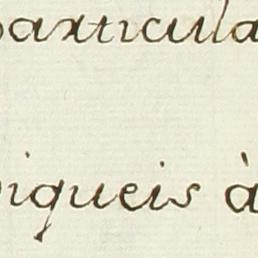 particula
iqueis à